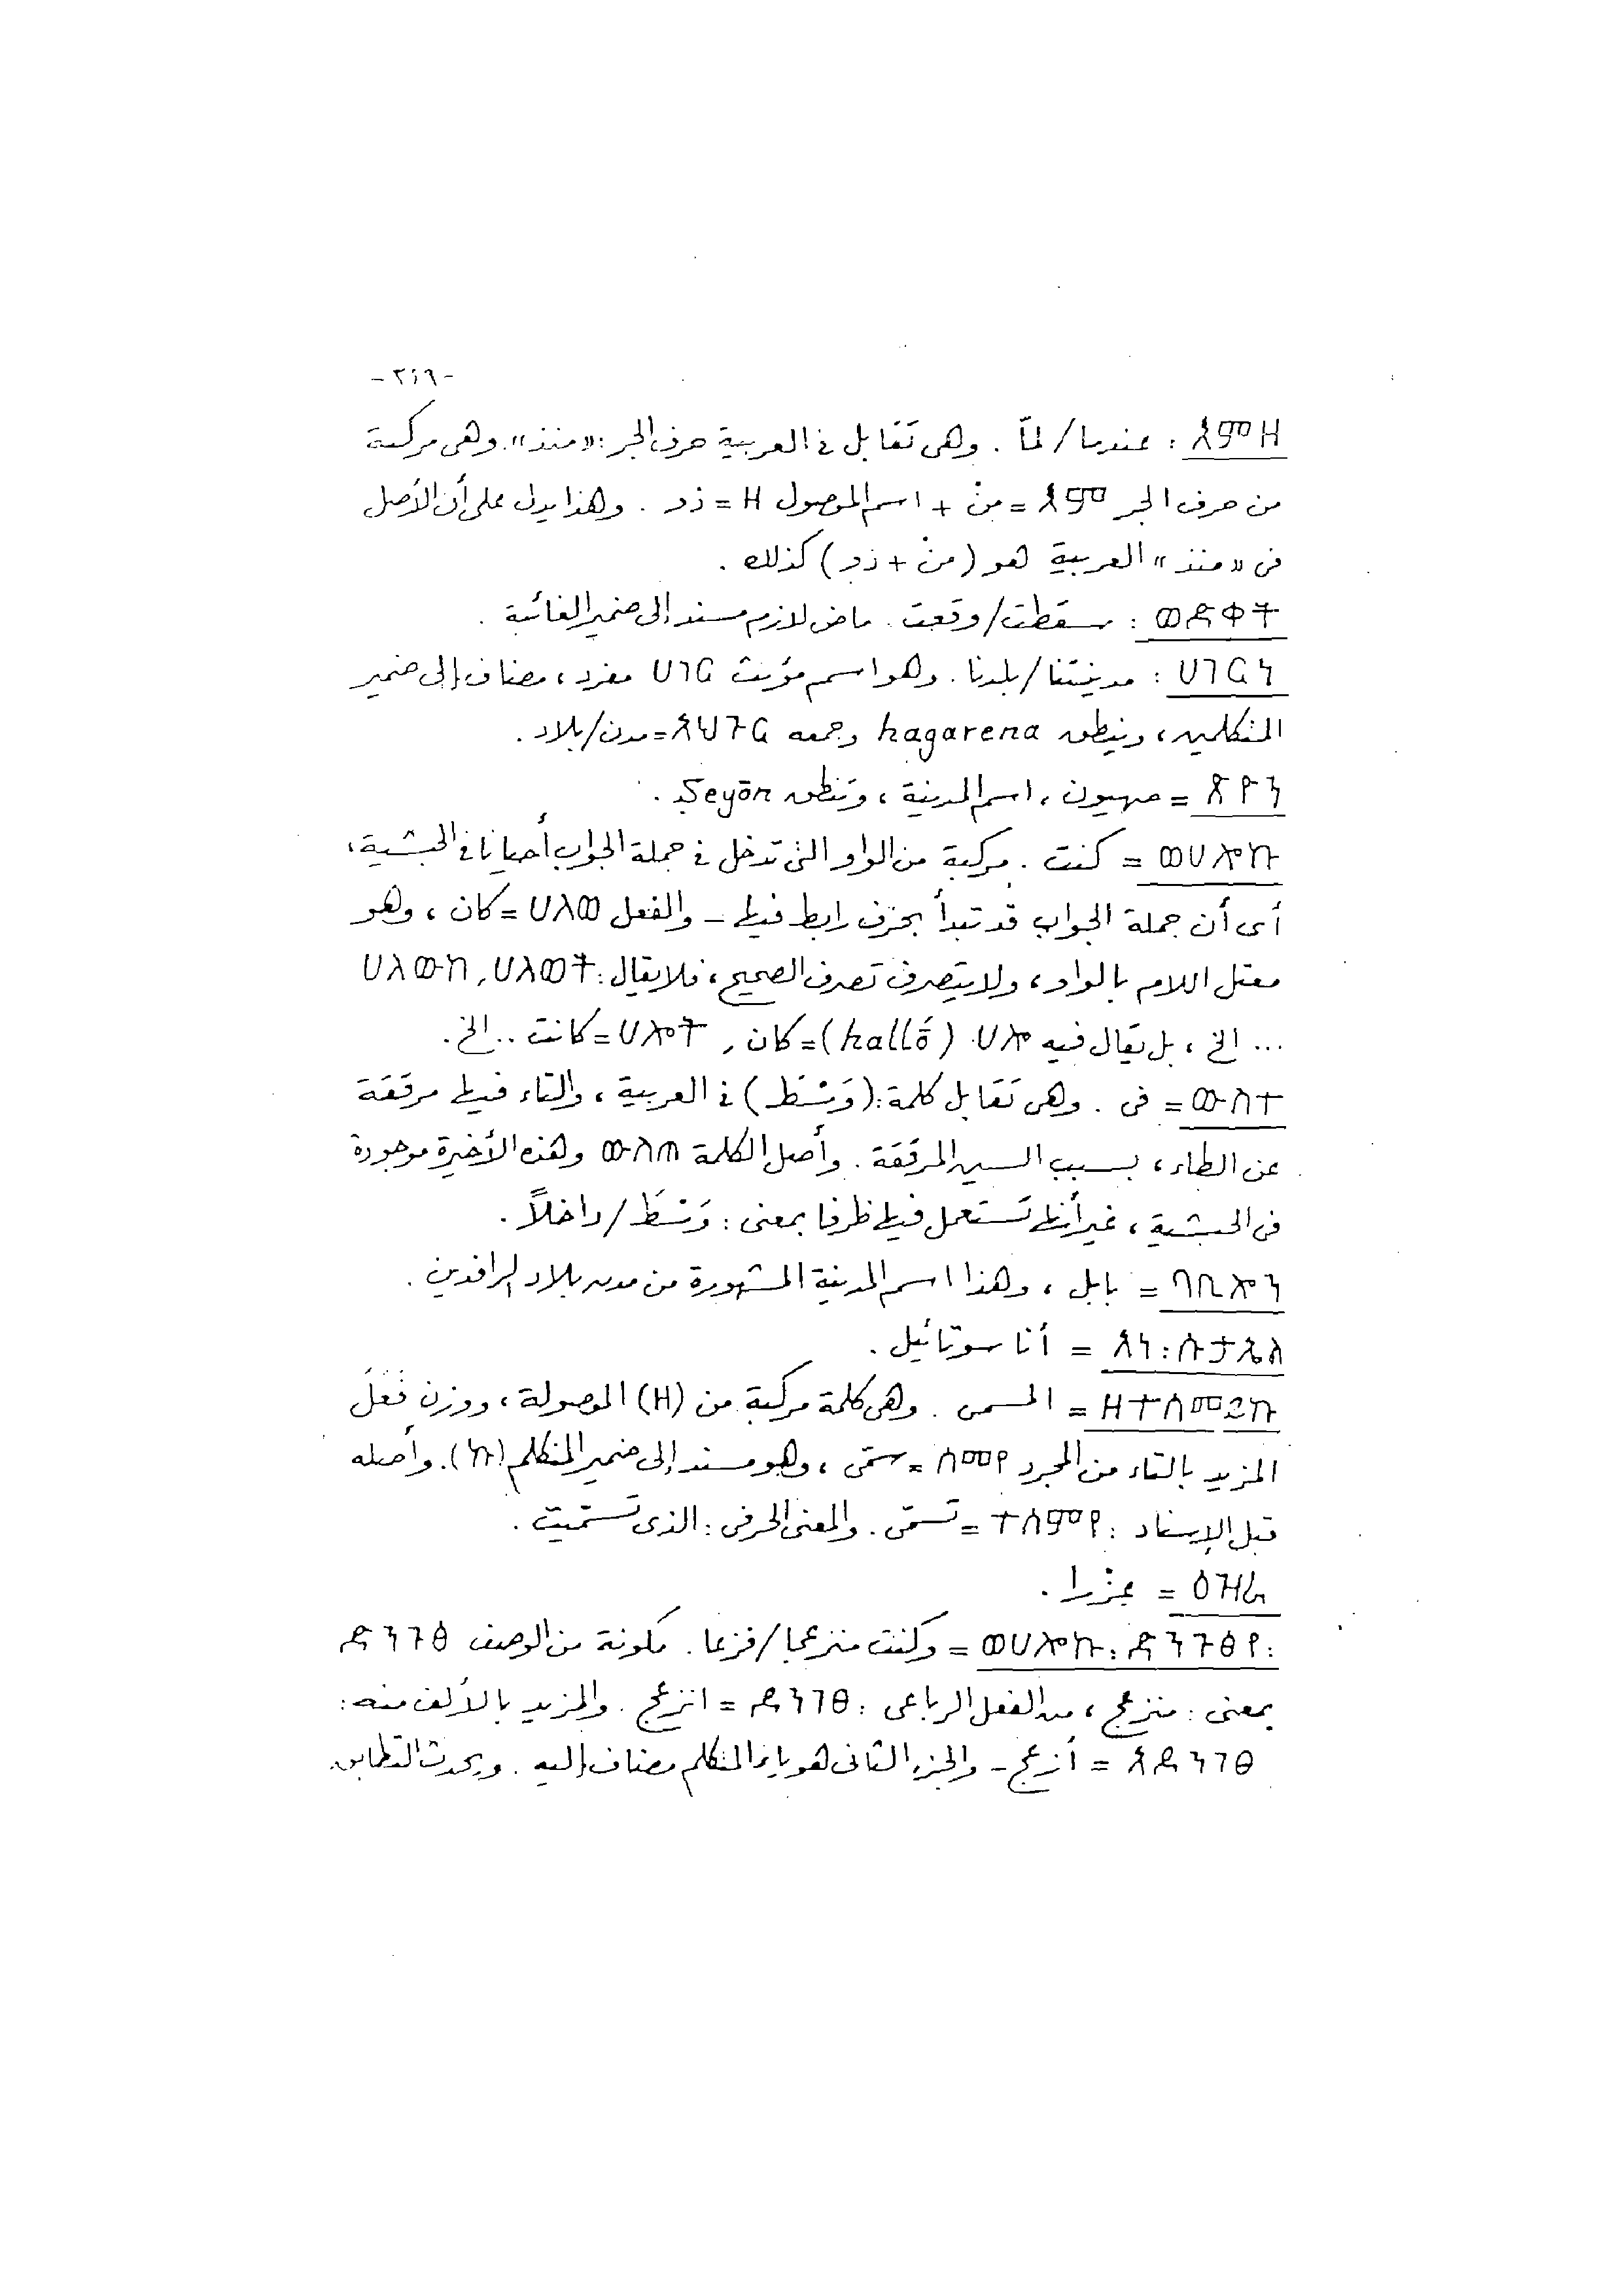 -٢١٩-
እምዘ : عندما/لمّا . وهى تقابل فى العربية حرف الجر : «منذ». وهى مركبة
من حرف الجر እም = مِنْ + اسم الموصول ዘ = ذو . وهذا يدل على أن الأصل
فى «منذ» العربية هو (مِنْ + ذو) كذلك .
ወድቀት : سقطت/وقعت . ماض لازم مسند إلى ضمير الغائبة .
ሀገርነ : مدينتنا/بلدنا . وهو اسم مؤنث ሀገር مفرد ، مضاف إلى ضمير
المتكلمين ، وينطق hagarena وجمعه አህጉር = مدن/بلاد .
ጽዮን = صهيون ، اسم المدينة ، وتنطق Ṣeyōn .
ወሀሎኩ = كنت . مركبة من الواو التى تدخل فى جملة الجواب أحيانا فى الحبشية ،
أى أن جملة الجواب قد تبدأ بحرف رابط فيها – والفعل ሀለወ = كان ، وهو
معتل اللام بالواو ، ولا يتصرف تصرف الصحيح ، فلا يقال : ሀለወት , ሀለውኩ
... الخ ، بل يقال فيه ሀሎ (hallō) = كان , ሀሎት = كانت .. الخ .
ውስተ = فى . وهى تقابل كلمة : (وَسْطَ) فى العربية ، والتاء فيها مرققة
عن الطاء ، بسبب السين المرققة . وأصل الكلمة ውስጠ وهذه الأخيرة موجودة
فى الحبشية ، غير أنها تستعمل فيها ظرفا بمعنى : وَسْطَ/داخلاً .
ባቢሎን = بابل ، وهذا اسم المدينة المشهورة من مدن بلاد الرافدين .
አነ : ሱታኤል = أنا سوتائيل .
ዘተሰመይኩ = المسمى . وهى كلمة مركبة من (ዘ) الموصولة ، ووزن فَعَلَ
المزيد بالتاء من المجرد ሰመየ = سمّى ، وهو مسند إلى ضمير المتكلم (ኩ) . وأصله
قبل الإسناد : ተሰምየ = تسمّى . والمعنى الحرفى : الذى تسمّيت .
ዕዝራ = عِزْرا .
ወሀሎኩ : ድንጉፅየ : = وكنت منزعجا/فزعا . مكونة من الوصف ድንጉፅ
بمعنى : منزعج ، من الفعل الرباعى : ደንገፀ = انزعج . والمزيد بالألف منه :
አደንገፀ = أزعج – والجزء الثانى هو ياء المتكلم مضاف إليه . ويحدث التطابق